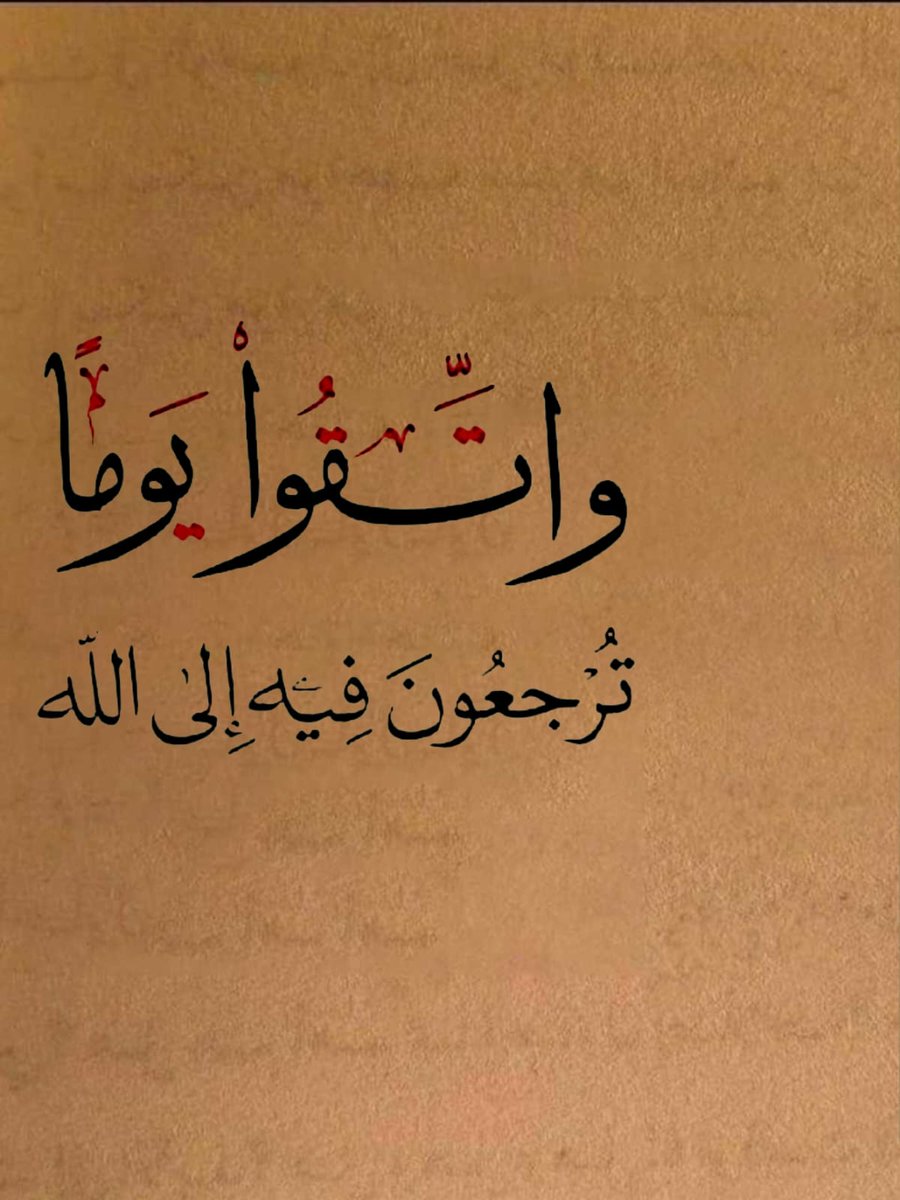 وَاتَّقُواْ يَوْمًا
تُرْجَعُونَ فِيهِ إِلَىٰ اللّه